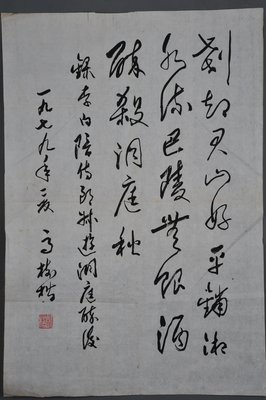 剗却君山好平鋪湘
水流巴陵無限酒
醉殺洞庭秋
錄李白陪侍郎叔遊洞庭醉後
一九七九年